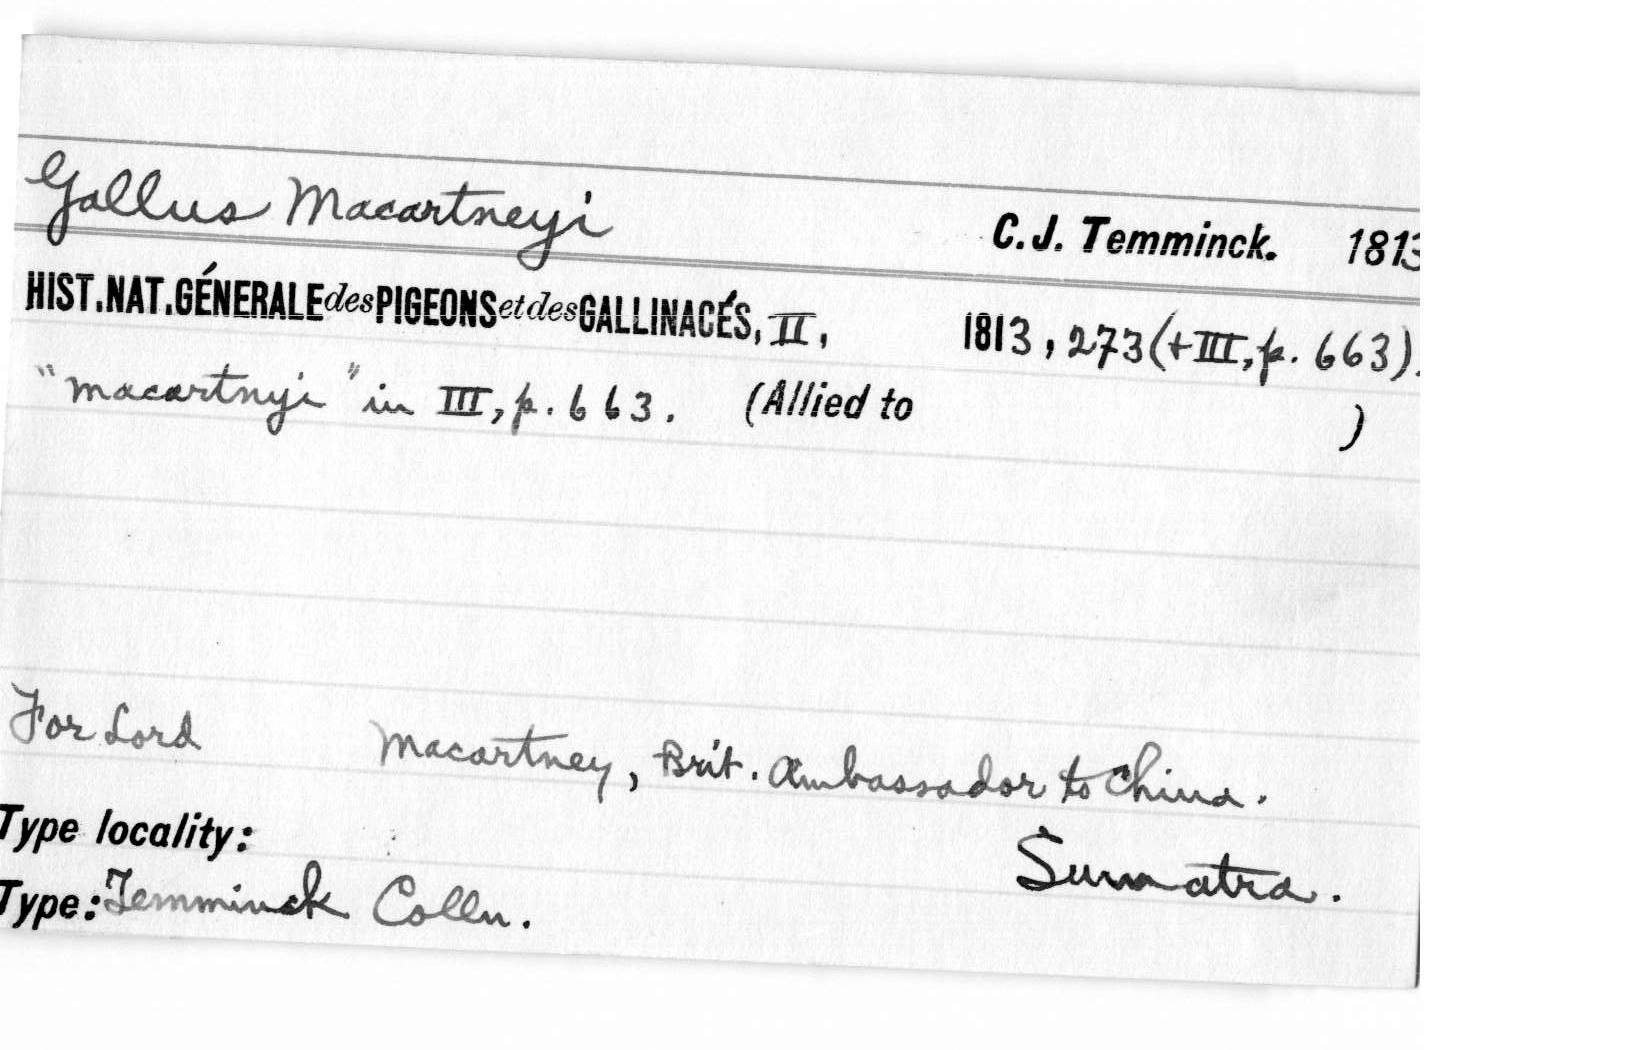 Gallus Macartneyi C.J. Temminck. 1813
HIST.NAT.GÉNERALE des PIGEONS et des GALLINACÉS, II, 1813, 273 (+III, p. 663).
"macartnyi" in III, p. 663. (Allied to )
For Lord Macartney, Brit. Ambassador to China.
Type locality: Sumatra.
Type: Temminck Colln.